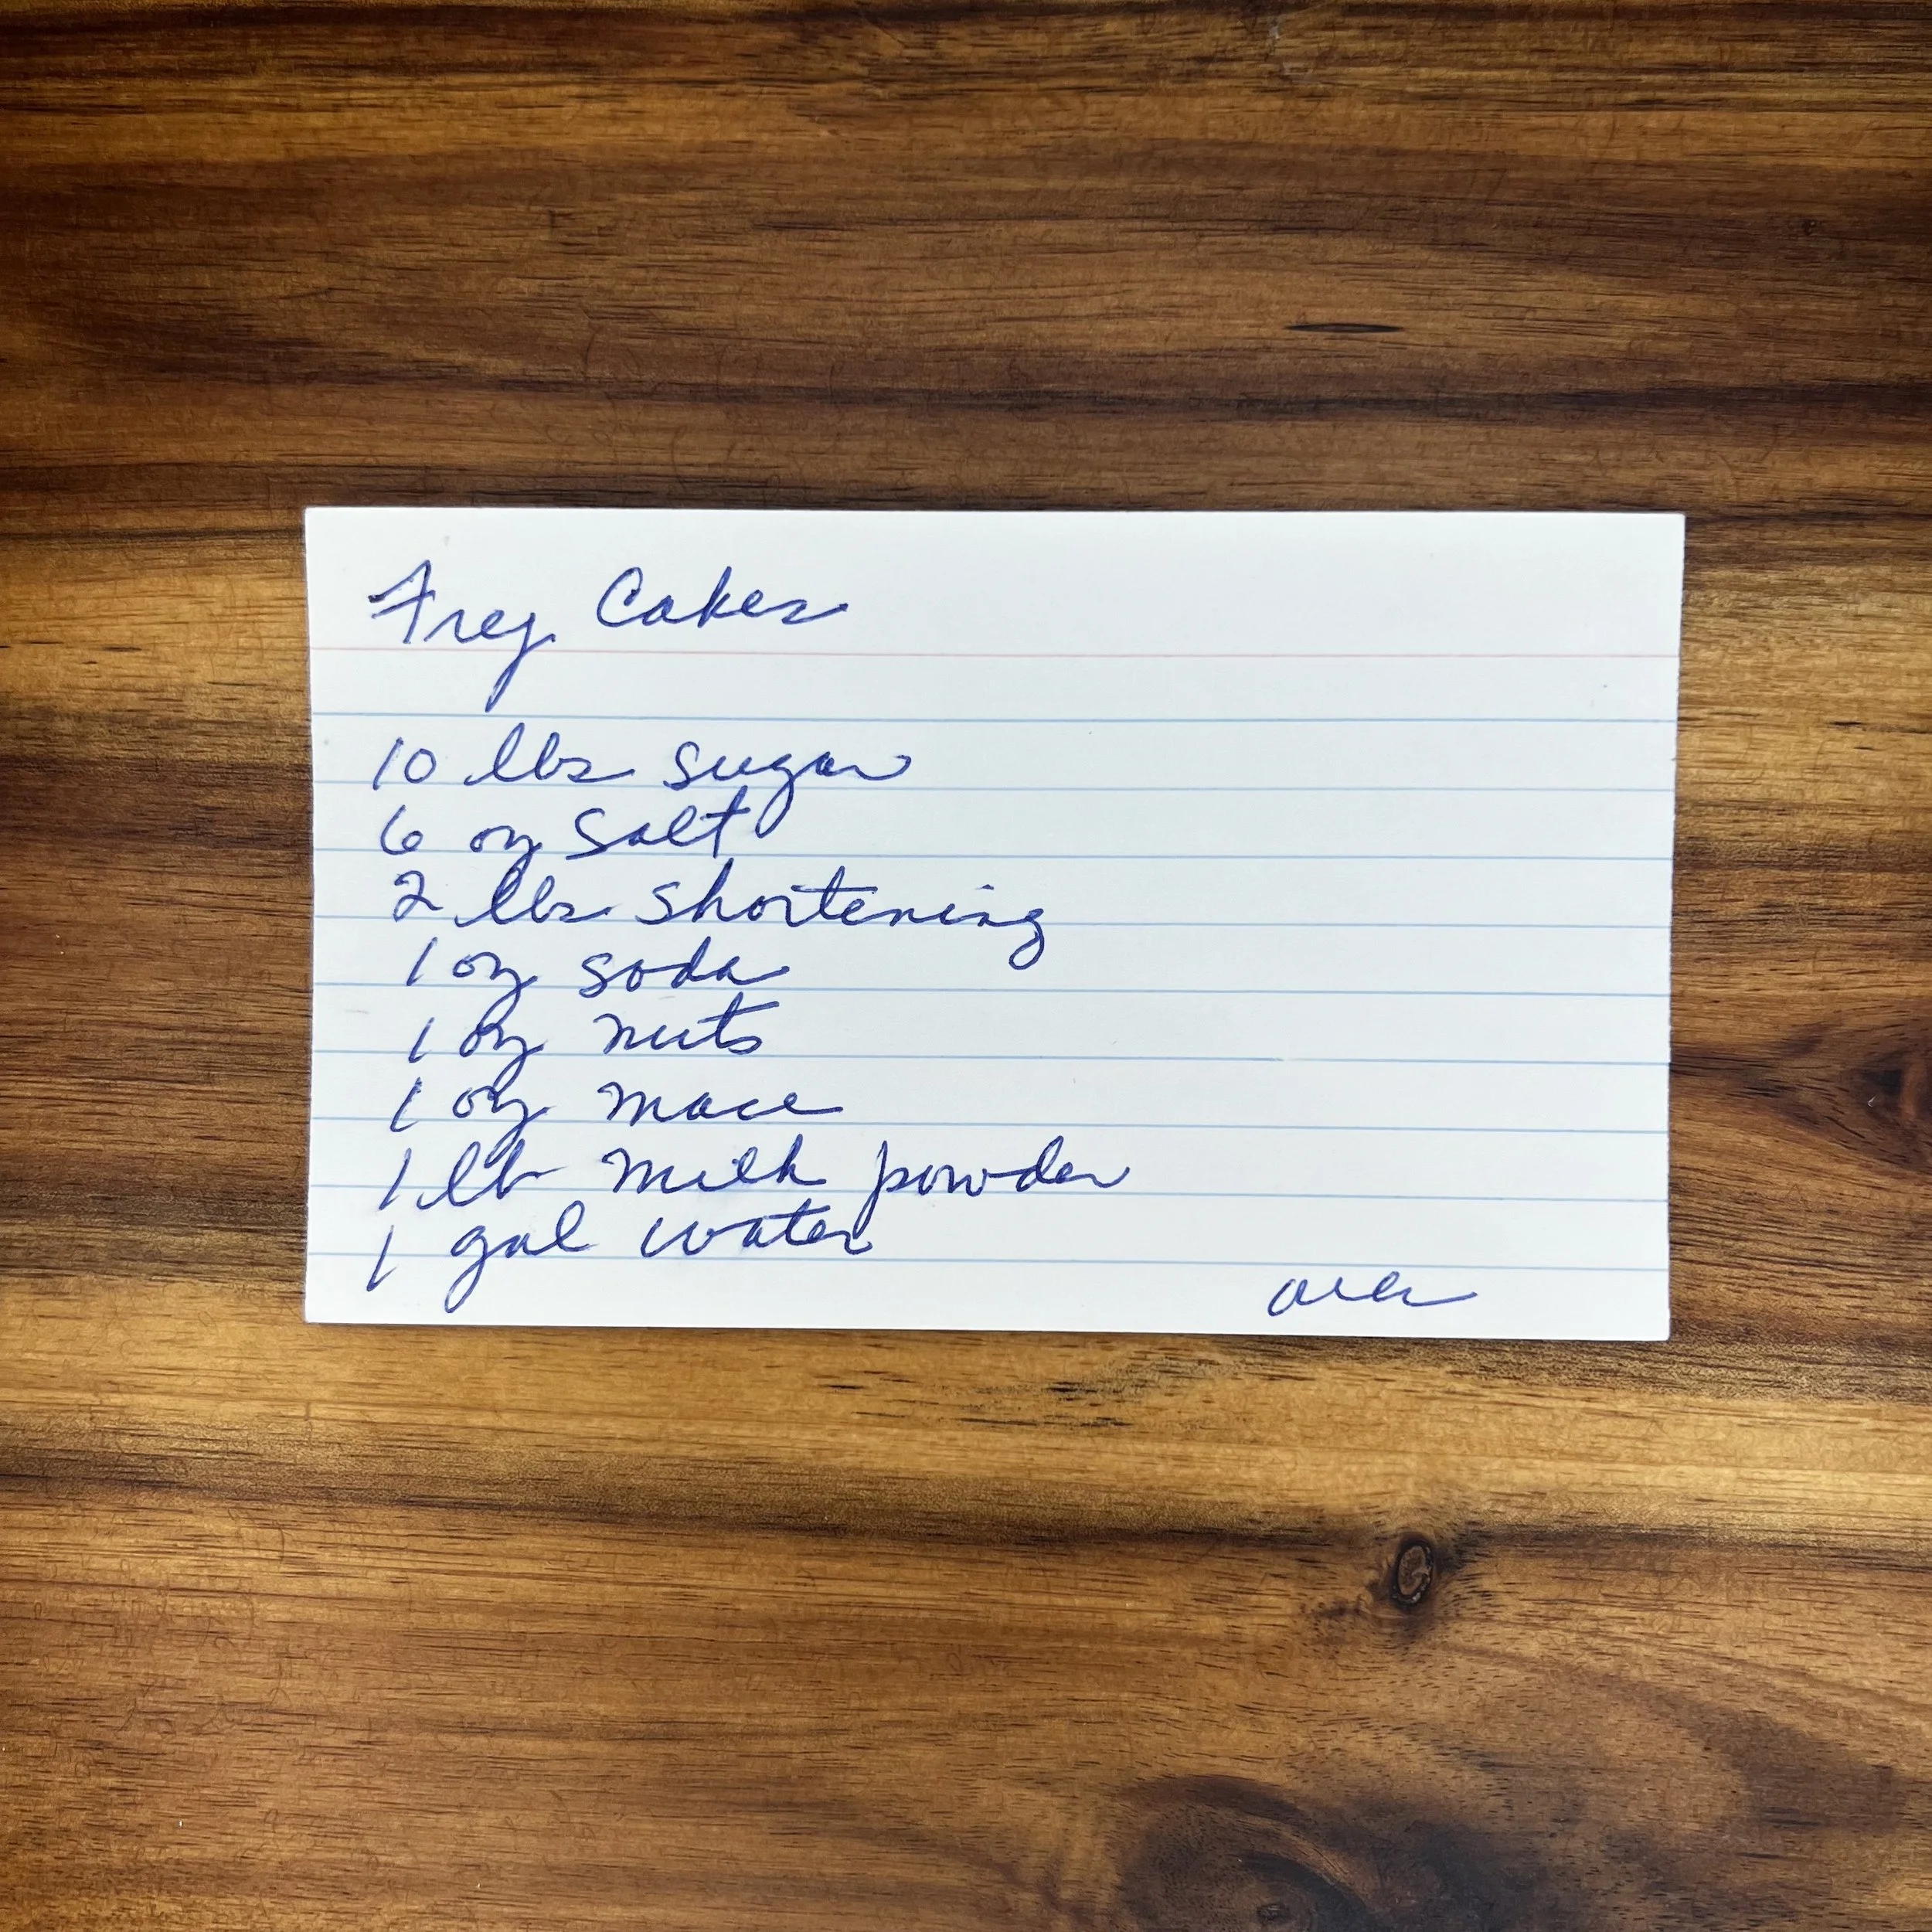 Frey Cakes
10 lbs sugar
6 oz salt
2 lbs shortening
1 oz soda
1 oz nuts
1 oz mace
1 lb milk powder
1 gal water
over